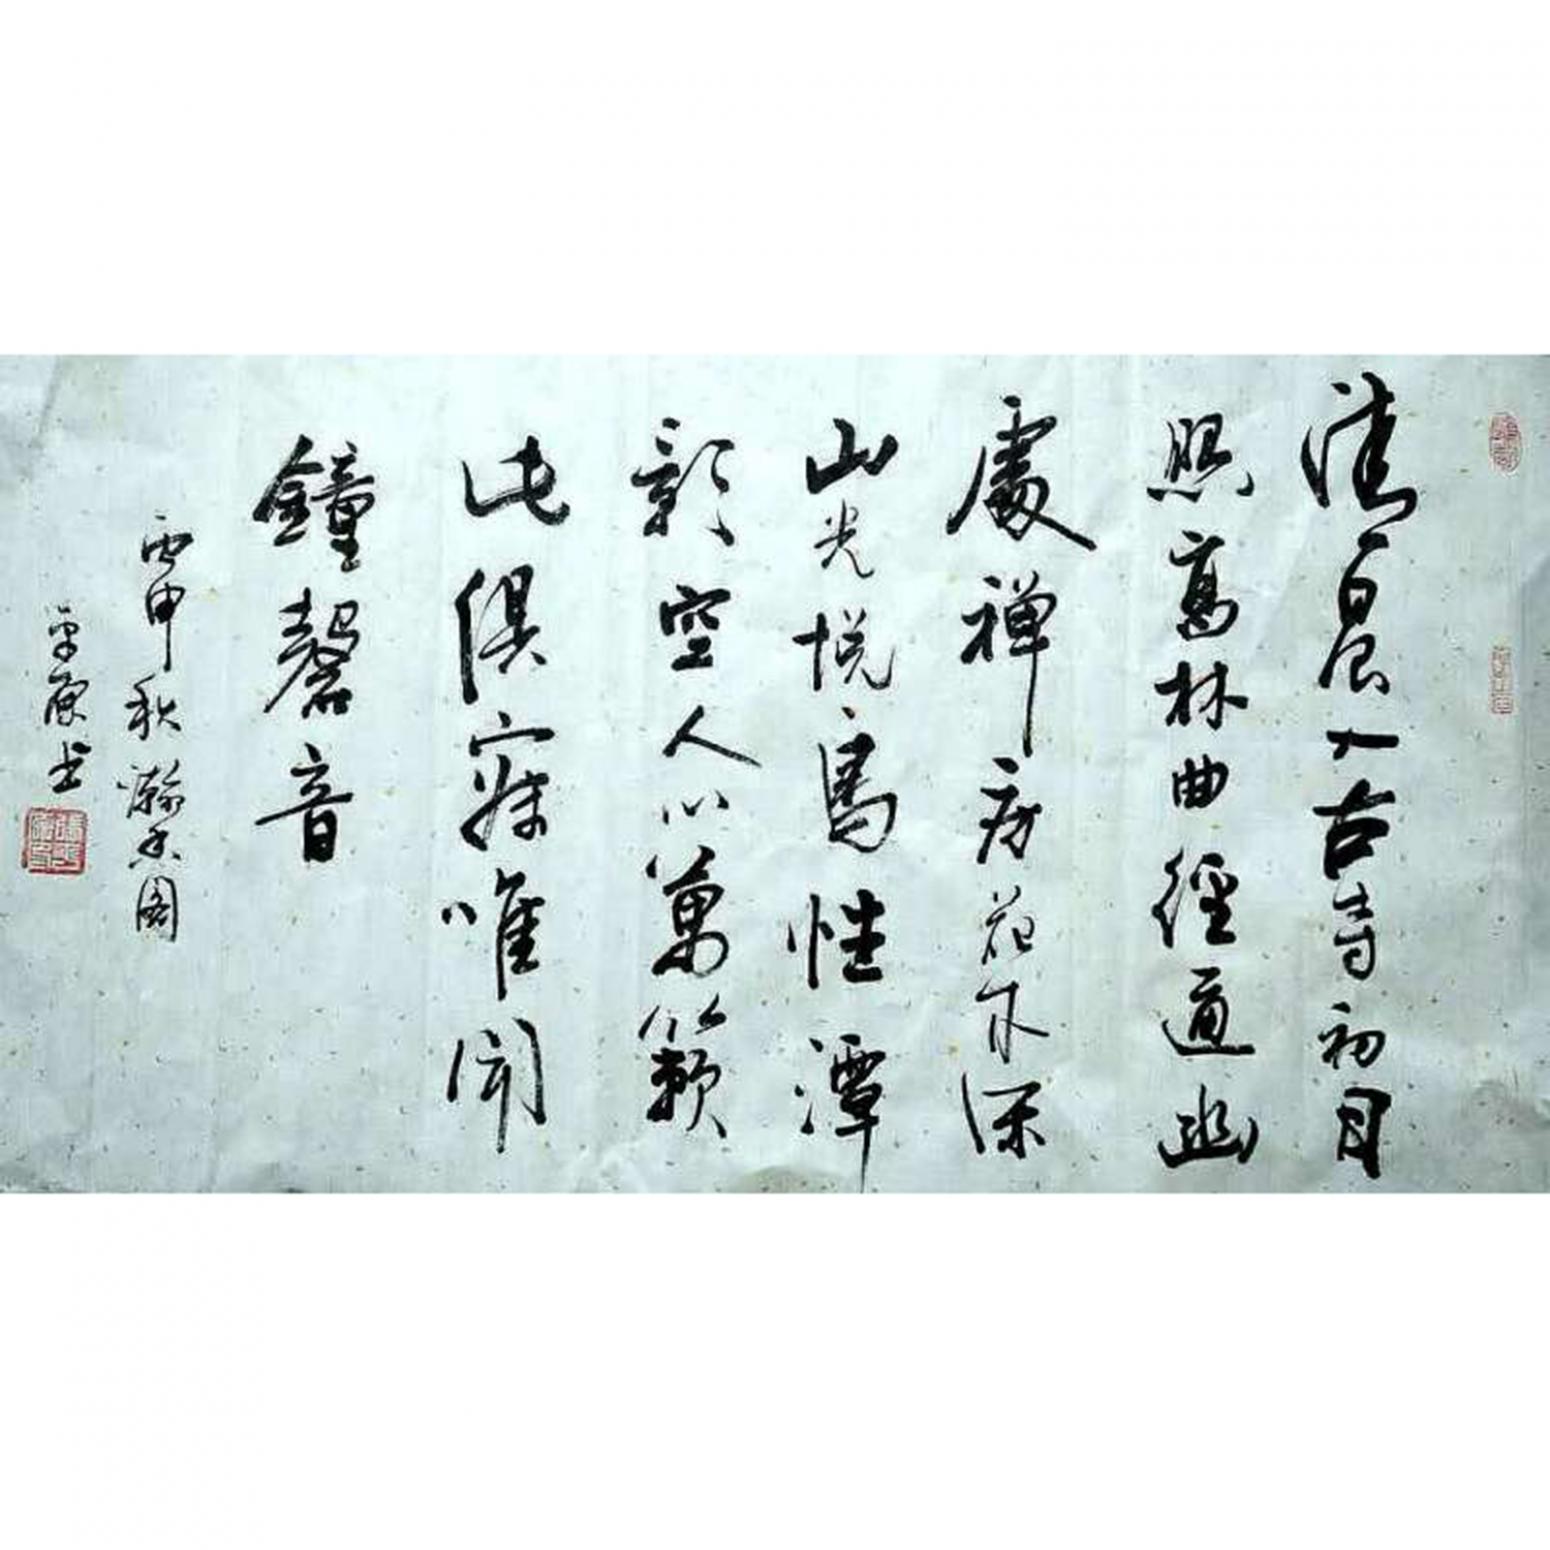 清晨入古寺初日
照高林曲徑通幽
處禅房花木深
山光悦鳥性潭
影空人心萬籟
此俱寂唯聞
鐘磬音
丙申秋瀚墨阁